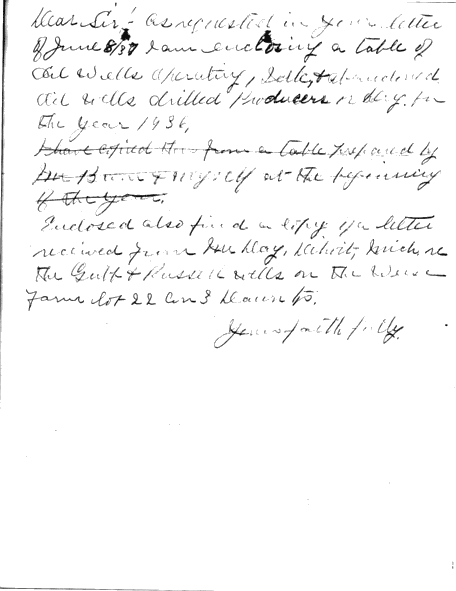 Dear Sir:- As requested in your letter
of June 8/37 I am enclosing a table of
Oil Wells operating, Idle, & abandoned
Oil wells drilled Producers or dry for
the year 1936,
I have copied this from a table prepared by
Mr & myself at the beginning
of the year.
Enclosed also find a copy of a letter
received from Mr Day, Detroit, Mich, re
the Gulf & Russell wells on the
Farm lot 22 Con 3 Dawn tp.
Yours faithfully.